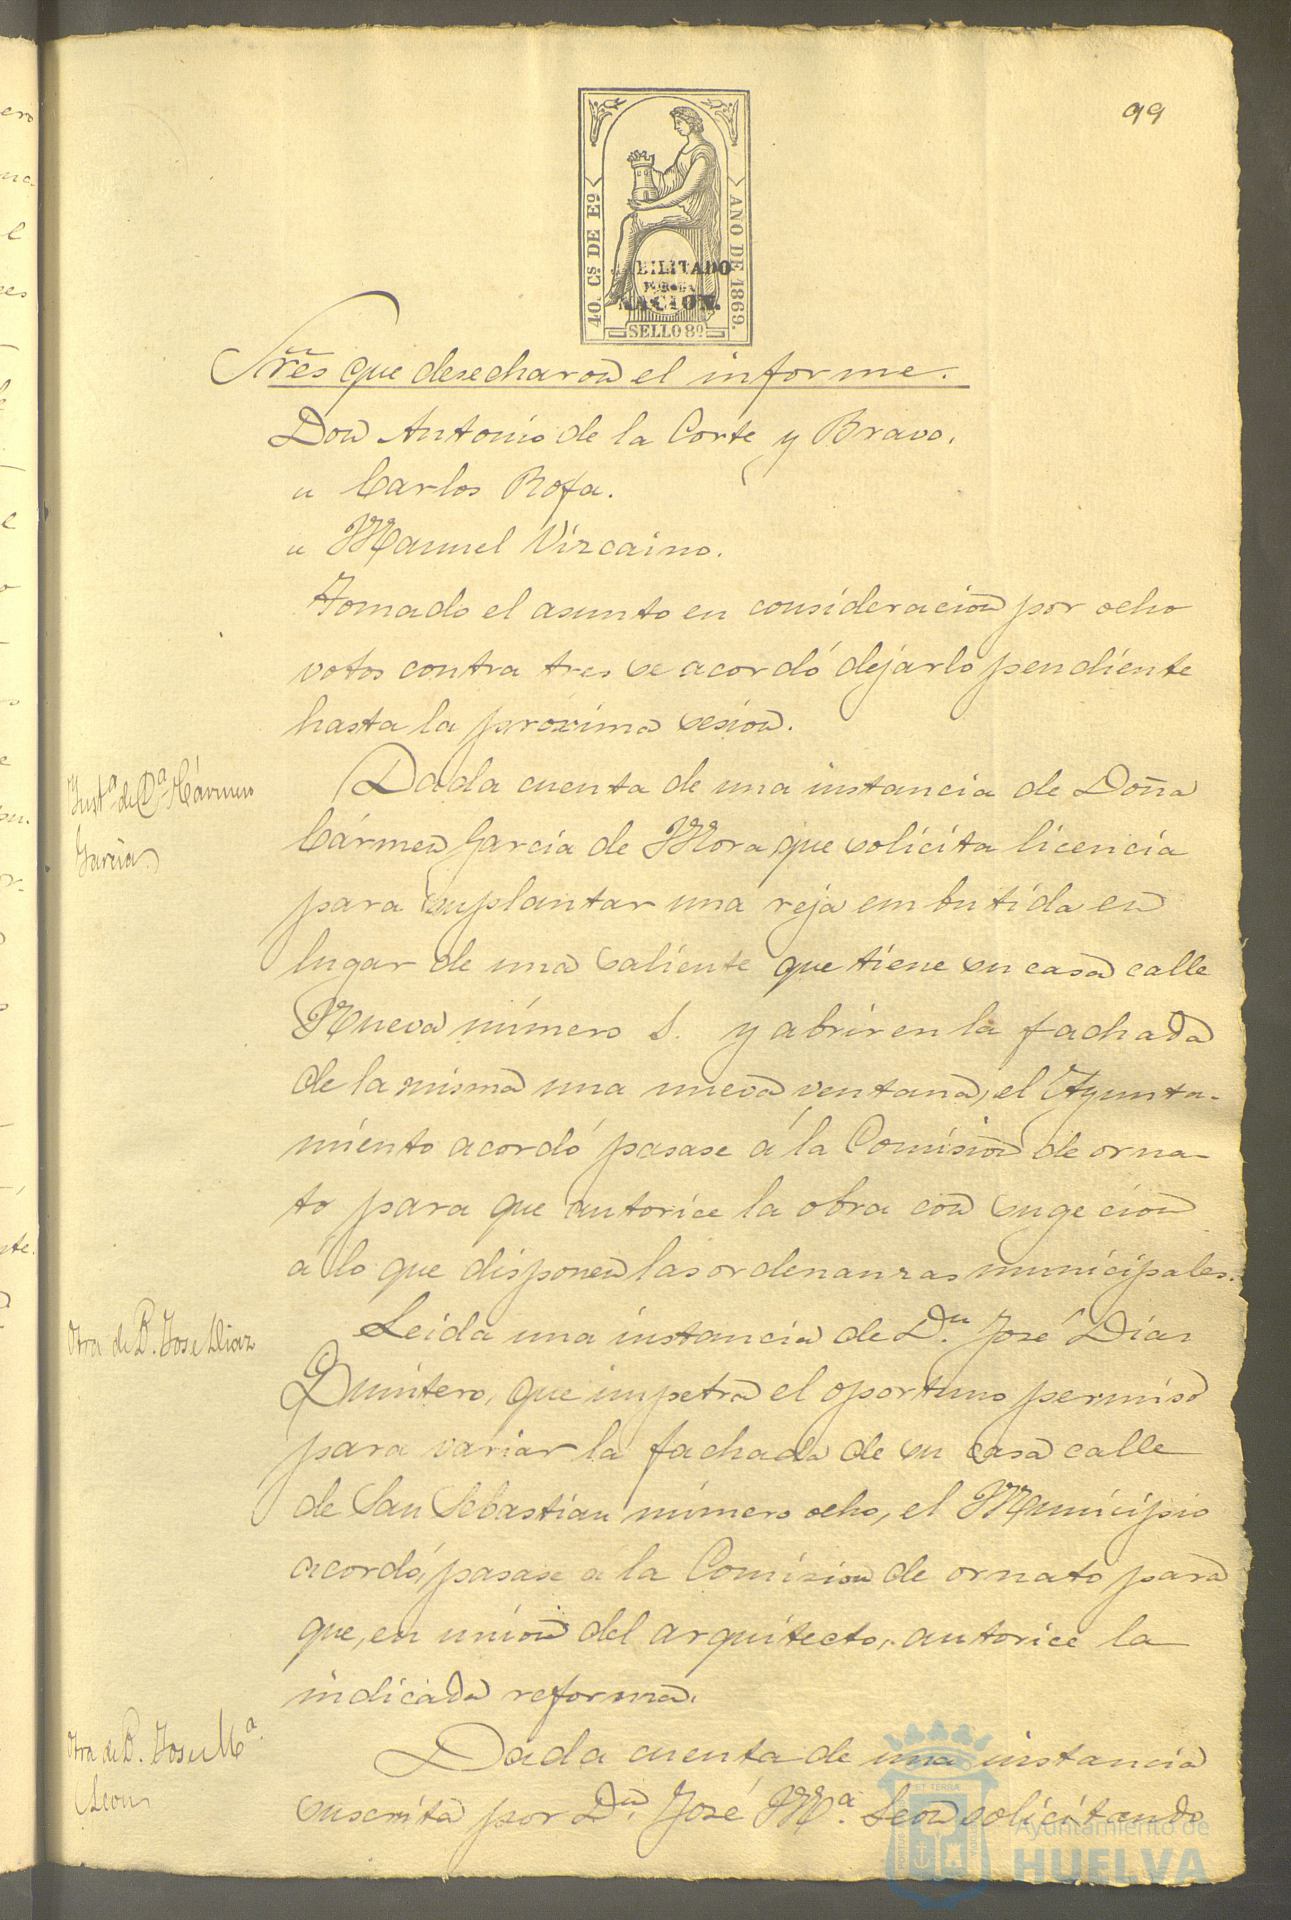 99
40. Cs DE Eo
AÑO DE 1869.
BILITADO
POR LA
NACION.
SELLO 8º
Sres que desecharon el informe.
Don Antonio de la Corte y Bravo.
" Carlos Rofa.
" Manuel Vizcaino.
Tomado el asunto en consideracion por ocho
votos contra tres se acordó dejarlo pendiente
hasta la próxima sesion.
Instª de Dª Cármen
Garcia
Dada cuenta de una instancia de Doña
Cármen Garcia de Mora que solicita licencia
para suplantar una reja embutida en
lugar de una saliente que tiene su casa calle
Nueva número S. y abrir en la fachada
de la misma una nueva ventana, el Ayunta-
miento acordó pasase á la Comision de orna-
to para que autorice la obra con sugecion
á lo que disponen las ordenanzas municipales.
Otra de D. Jose Diaz
Leida una instancia de Dn José Diaz
Quintero, que impetra el oportuno permiso
para variar la fachada de su casa calle
de San Sebastian número ocho, el Municipio
acordó, pasase a la Comision de ornato para
que, en union del arquitecto, autorice la
indicada reforma.
Otra de D. Jose Mª
Leon
Dada cuenta de una instancia
suscrita por Dn José Mª Leon solicitando
Ayuntamiento de
HUELVA